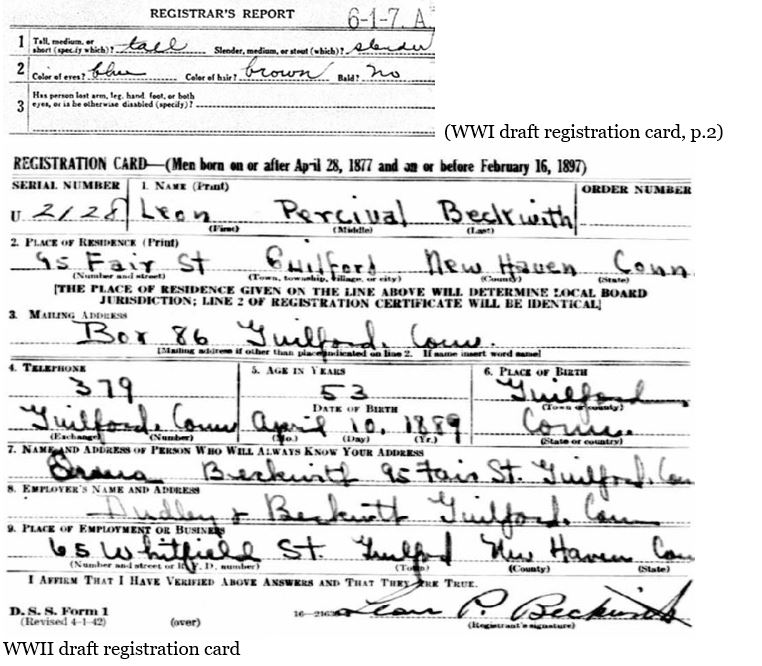 REGISTRAR'S REPORT 6-1-7. A
1 Tall, medium, or short (specify which)? tall Slender, medium, or stout (which)? slender
2 Color of eyes? blue Color of hair? brown Bald? no
3 Has person lost arm, leg, hand, foot, or both eyes, or is he otherwise disabled (specify)?
(WWI draft registration card, p.2)
REGISTRATION CARD—(Men born on or after April 28, 1877 and on or before February 16, 1897)
SERIAL NUMBER 1. NAME (Print) ORDER NUMBER
U 2128 Leon Percival Beckwith
(First) (Middle) (Last)
2. PLACE OF RESIDENCE (Print)
95 Fair St Guilford New Haven Conn
(Number and street) (Town, township, village, or city) (County) (State)
[THE PLACE OF RESIDENCE GIVEN ON THE LINE ABOVE WILL DETERMINE LOCAL BOARD
JURISDICTION; LINE 2 OF REGISTRATION CERTIFICATE WILL BE IDENTICAL]
3. MAILING ADDRESS
Box 86 Guilford, Conn.
[Mailing address if other than place indicated on line 2. If same insert word same]
4. TELEPHONE 5. AGE IN YEARS 6. PLACE OF BIRTH
379 53 Guilford
DATE OF BIRTH (Town or county)
Guilford, Conn April 10, 1889 Conn.
(Exchange) (Number) (Mo.) (Day) (Yr.) (State or country)
7. NAME AND ADDRESS OF PERSON WHO WILL ALWAYS KNOW YOUR ADDRESS
Beckwith 95 Fair St. Guilford, Con
8. EMPLOYER'S NAME AND ADDRESS
Dudley & Beckwith Guilford, Conn
9. PLACE OF EMPLOYMENT OR BUSINESS
65 Whitfield St. Guilford New Haven Con
(Number and street or R. F. D. number) (Town) (County) (State)
I AFFIRM THAT I HAVE VERIFIED ABOVE ANSWERS AND THAT THEY ARE TRUE.
D. S. S. Form 1
(Revised 4-1-42) (over) Leon P. Beckwith
(Registrant's signature)
WWII draft registration card